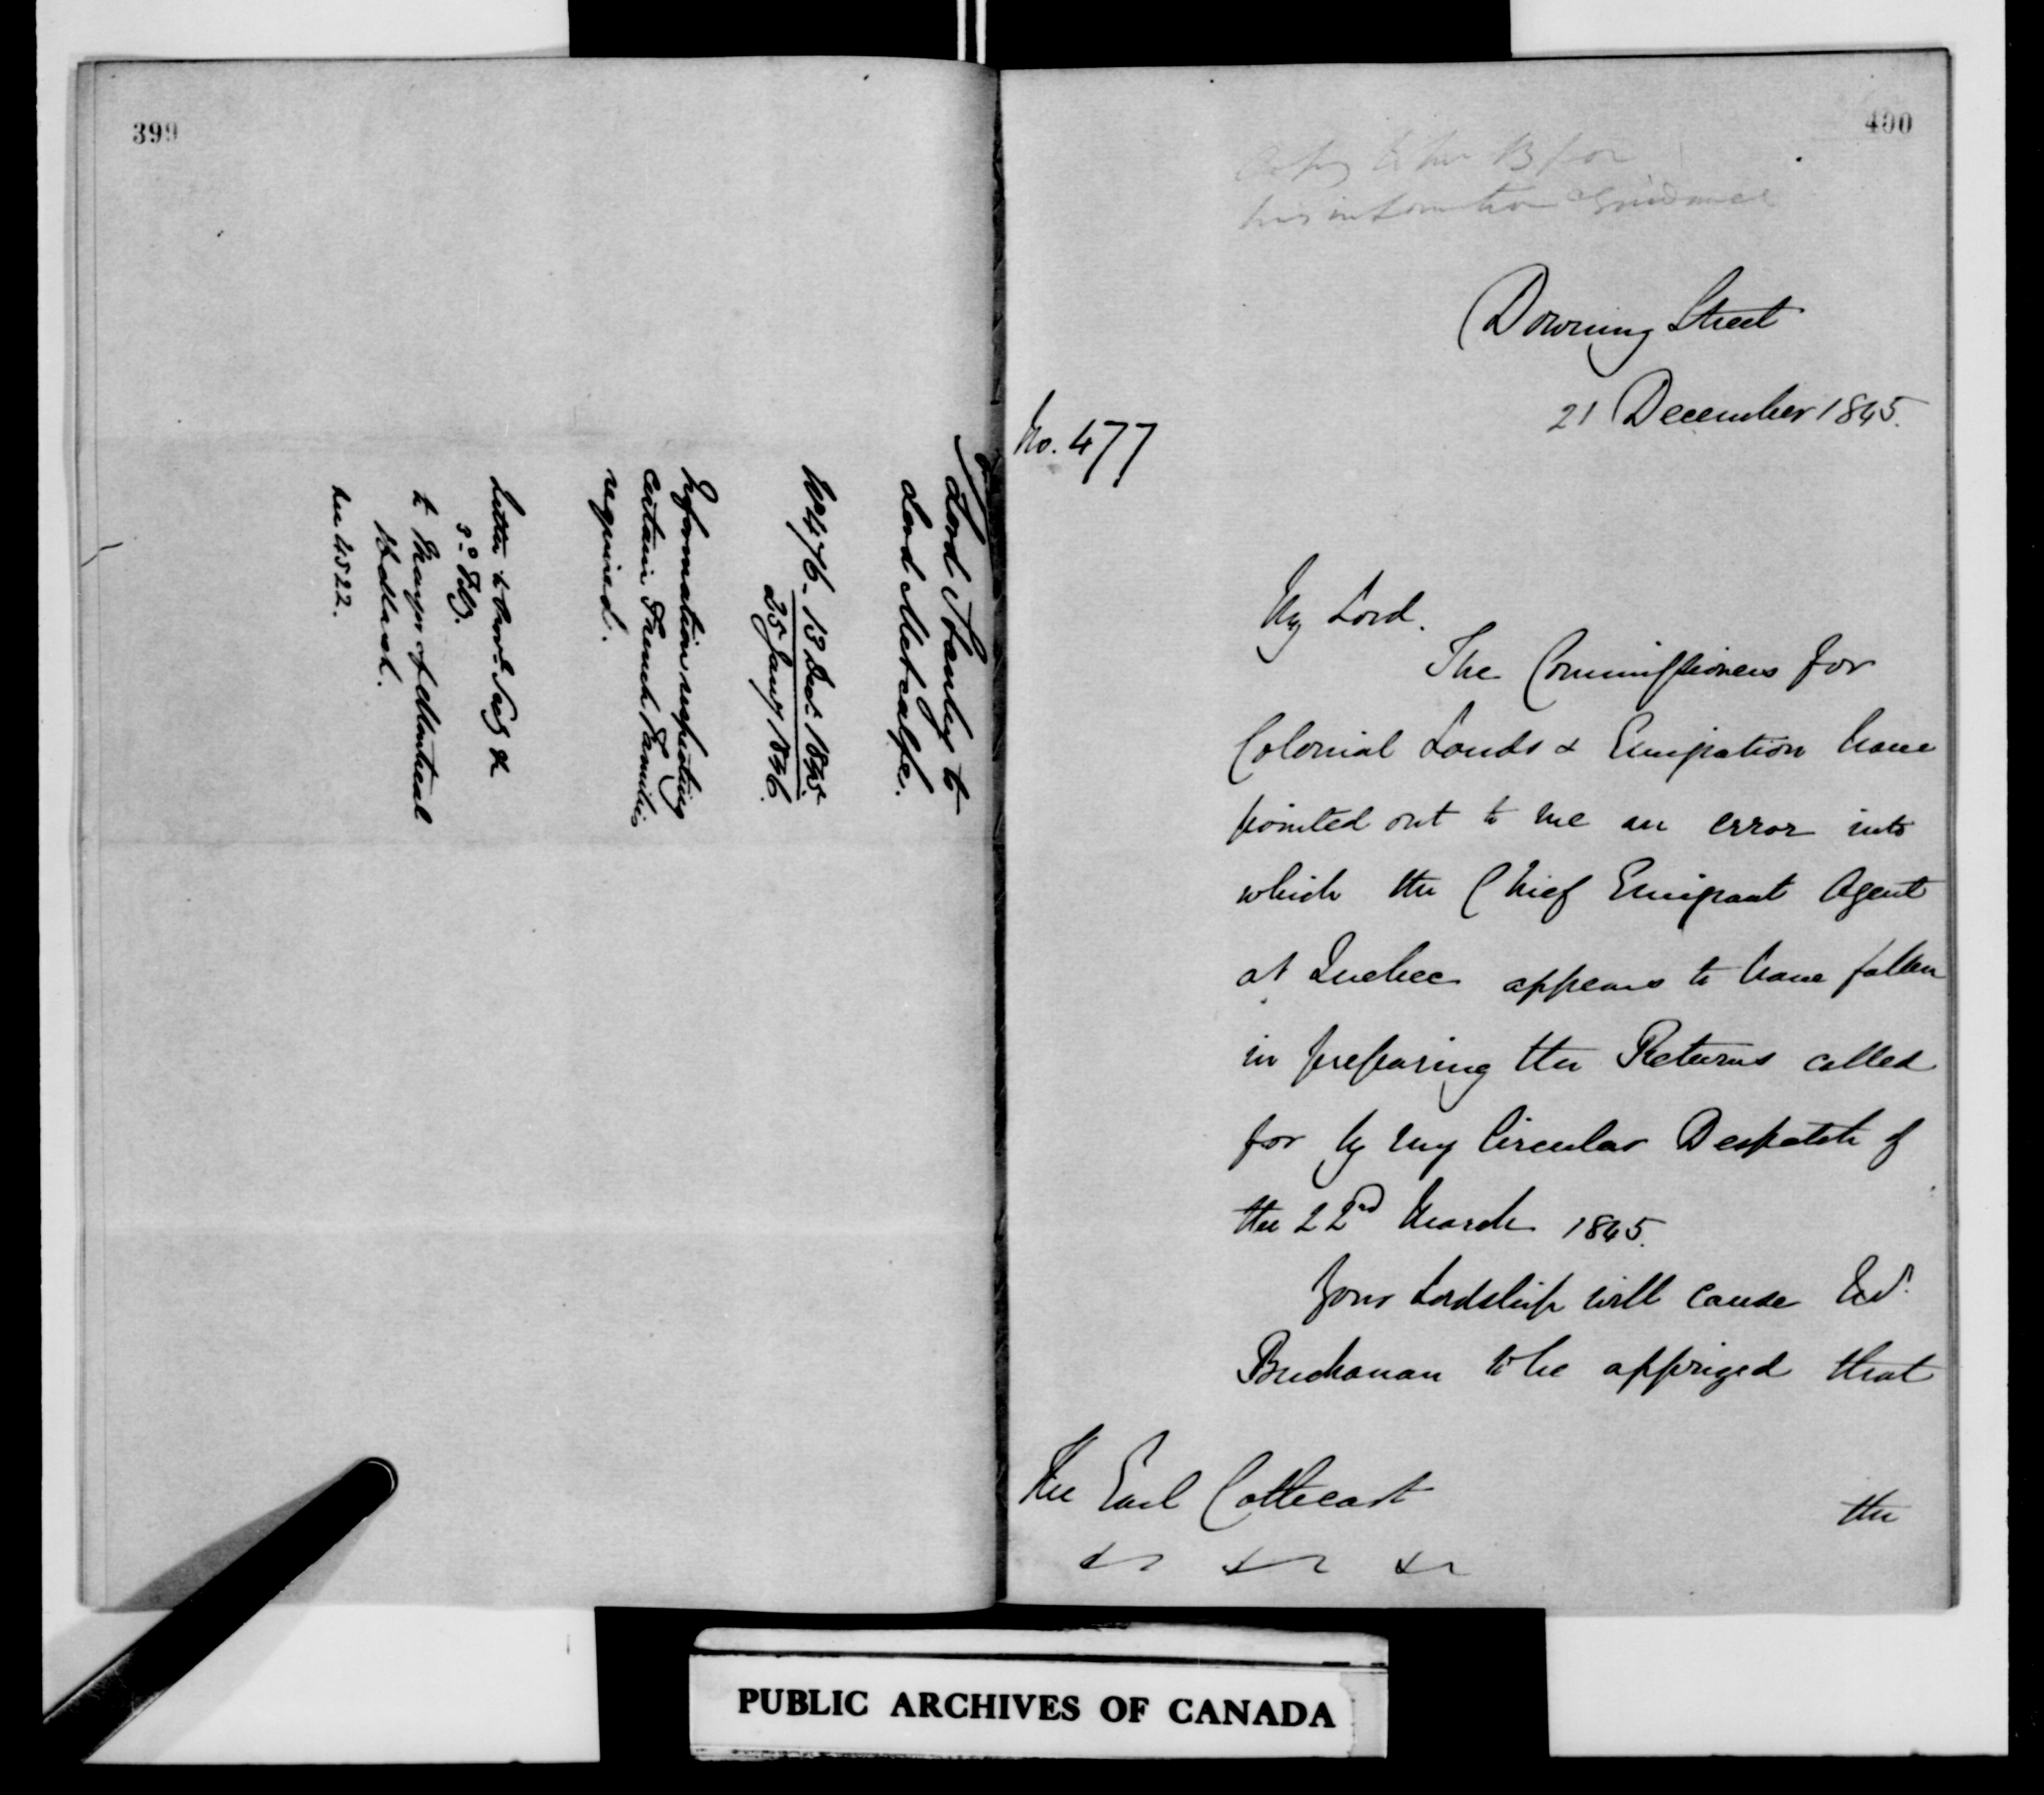 399
Lord Stanley to
Lord Metcalfe.
No 476. 13 Decr. 1845.
25 Jany 1846.
Information respecting
certain French Families
required.
Letter to Prov. Secy &
3 Feby.
to Mayor of Montreal
see 4522.
400
Copy to Mr B for
his information & guidance
Downing Street
21 December 1845.
No. 477
My Lord.
The Commissioners for
Colonial Lands & Emigration have
pointed out to me an error into
which the Chief Emigrant Agent
at Quebec appears to have fallen
in preparing the Returns called
for by my Circular Despatch of
the 22nd March 1845.
Your Lordship will cause Mr.
Buchanan to be apprized that
The Earl Cathcart
the
&c &c &c
PUBLIC ARCHIVES OF CANADA